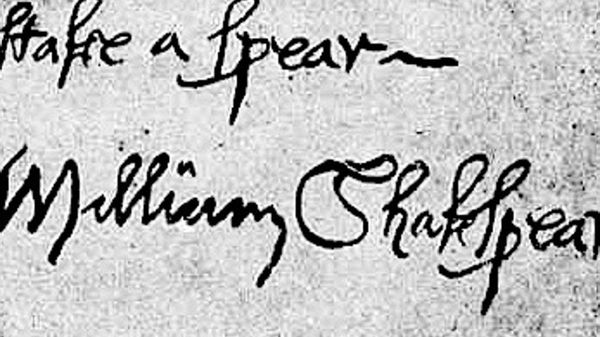 a Spear
William Shakspear